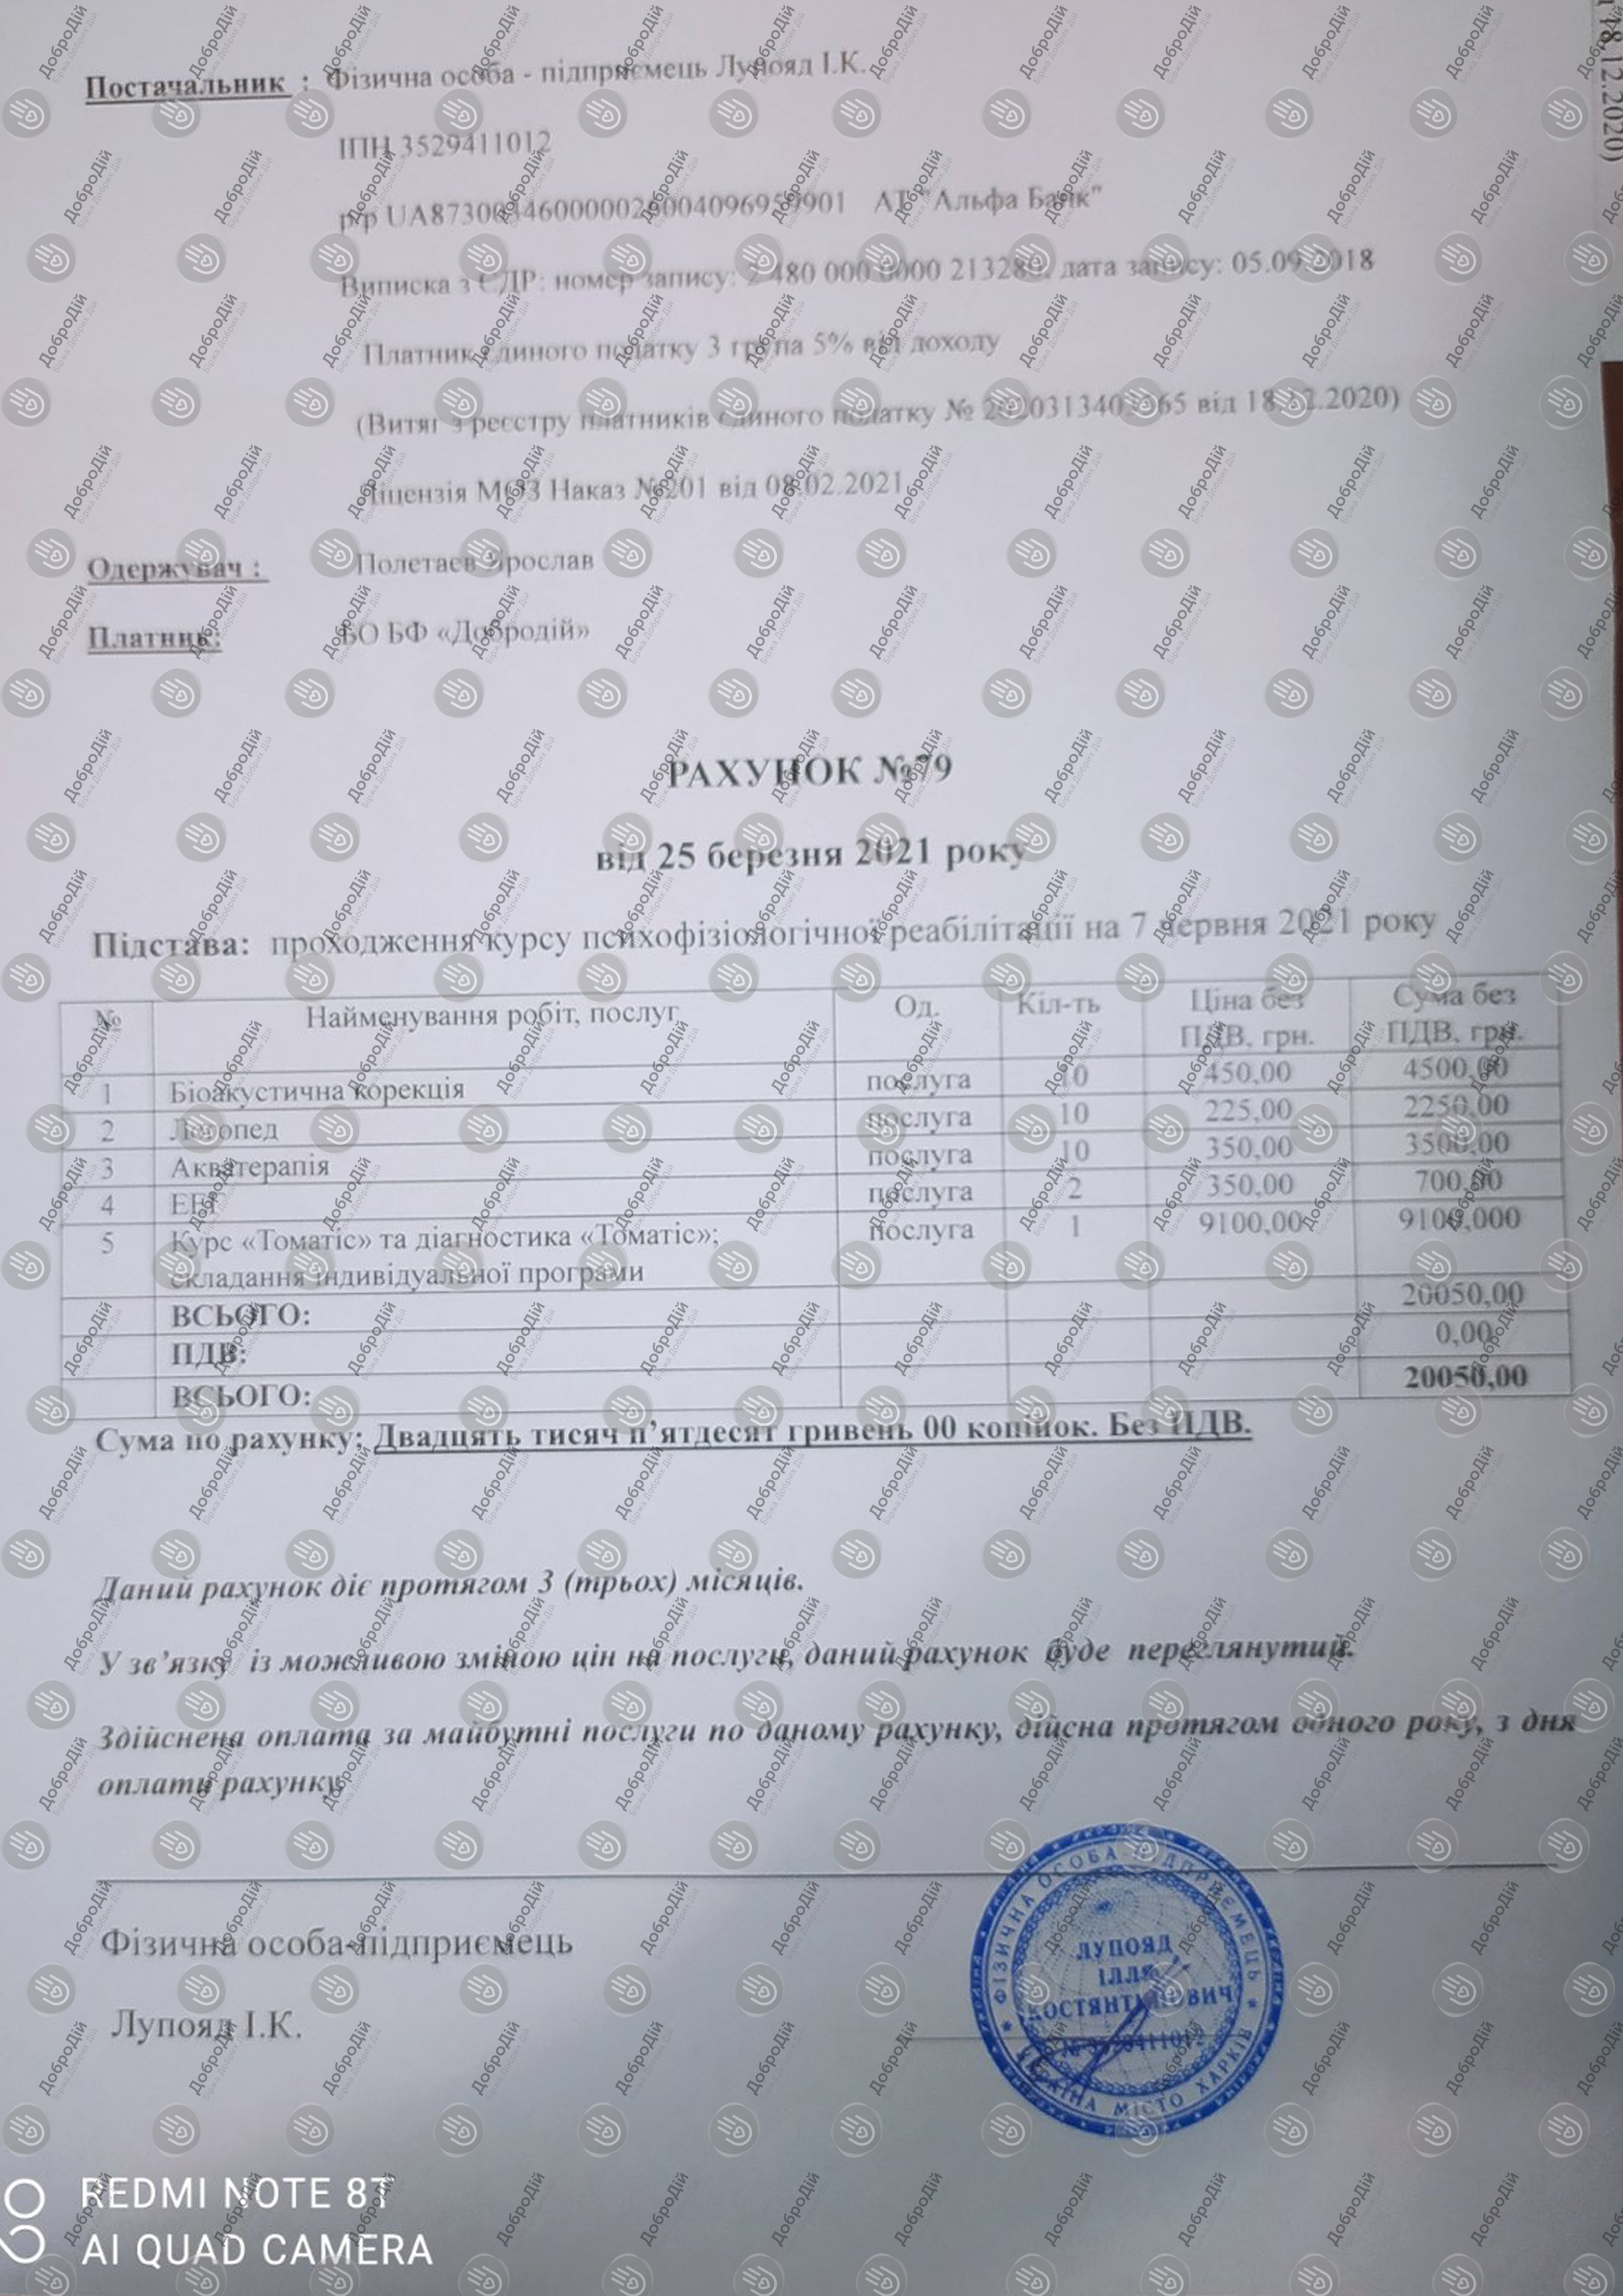 Постачальник : Фізична особа - підприємець Лупояд І.К.
ІПН 3529411012
р/р АТ "Альфа Банк"
Виписка з ЄДР: номер запису: 2 480 000 0000 дата запису: 05.09.2018
Платник єдиного податку 3 група 5% від доходу
(Витяг з реєстру платників єдиного податку № від 18.12.2020)
Ліцензія МОЗ Наказ №201 від 08.02.2021
Одержувач : Полетаєв Ярослав
Платник: БО БФ «Добродій»
РАХУНОК №79
від 25 березня 2021 року
Підстава: проходження курсу психофізіологічної реабілітації на 7 червня 2021 року
№ Найменування робіт, послуг Од. Кіл-ть Ціна без ПДВ, грн. Сума без ПДВ, грн.
1 Біоакустична корекція послуга 10 450,00 4500,00
2 Логопед послуга 10 225,00 2250,00
3 Акватерапія послуга 10 350,00 3500,00
4 ЕЕГ послуга 2 350,00 700,00
5 Курс «Томатіс» та діагностика «Томатіс»; послуга 1 9100,00 9100,000
складання індивідуальної програми
ВСЬОГО: 20050,00
ПДВ: 0,00
ВСЬОГО: 20050,00
Сума по рахунку: Двадцять тисяч п’ятдесят гривень 00 копійок. Без ПДВ.
Даний рахунок діє протягом 3 (трьох) місяців.
У зв’язку із можливою зміною цін на послуги, даний рахунок буде переглянутий.
Здійснена оплата за майбутні послуги по даному рахунку, дійсна протягом одного року, з дня
оплати рахунку.
Фізична особа-підприємець
Лупояд І.К.
ФІЗИЧНА ОСОБА-ПІДПРИЄМЕЦЬ
ЛУПОЯД
ІЛЛЯ
КОСТЯНТИНОВИЧ
УКРАЇНА МІСТО ХАРКІВ
REDMI NOTE 8T
AI QUAD CAMERA
18.12.2020)
ДоброДій
Біржа Добрих Дій